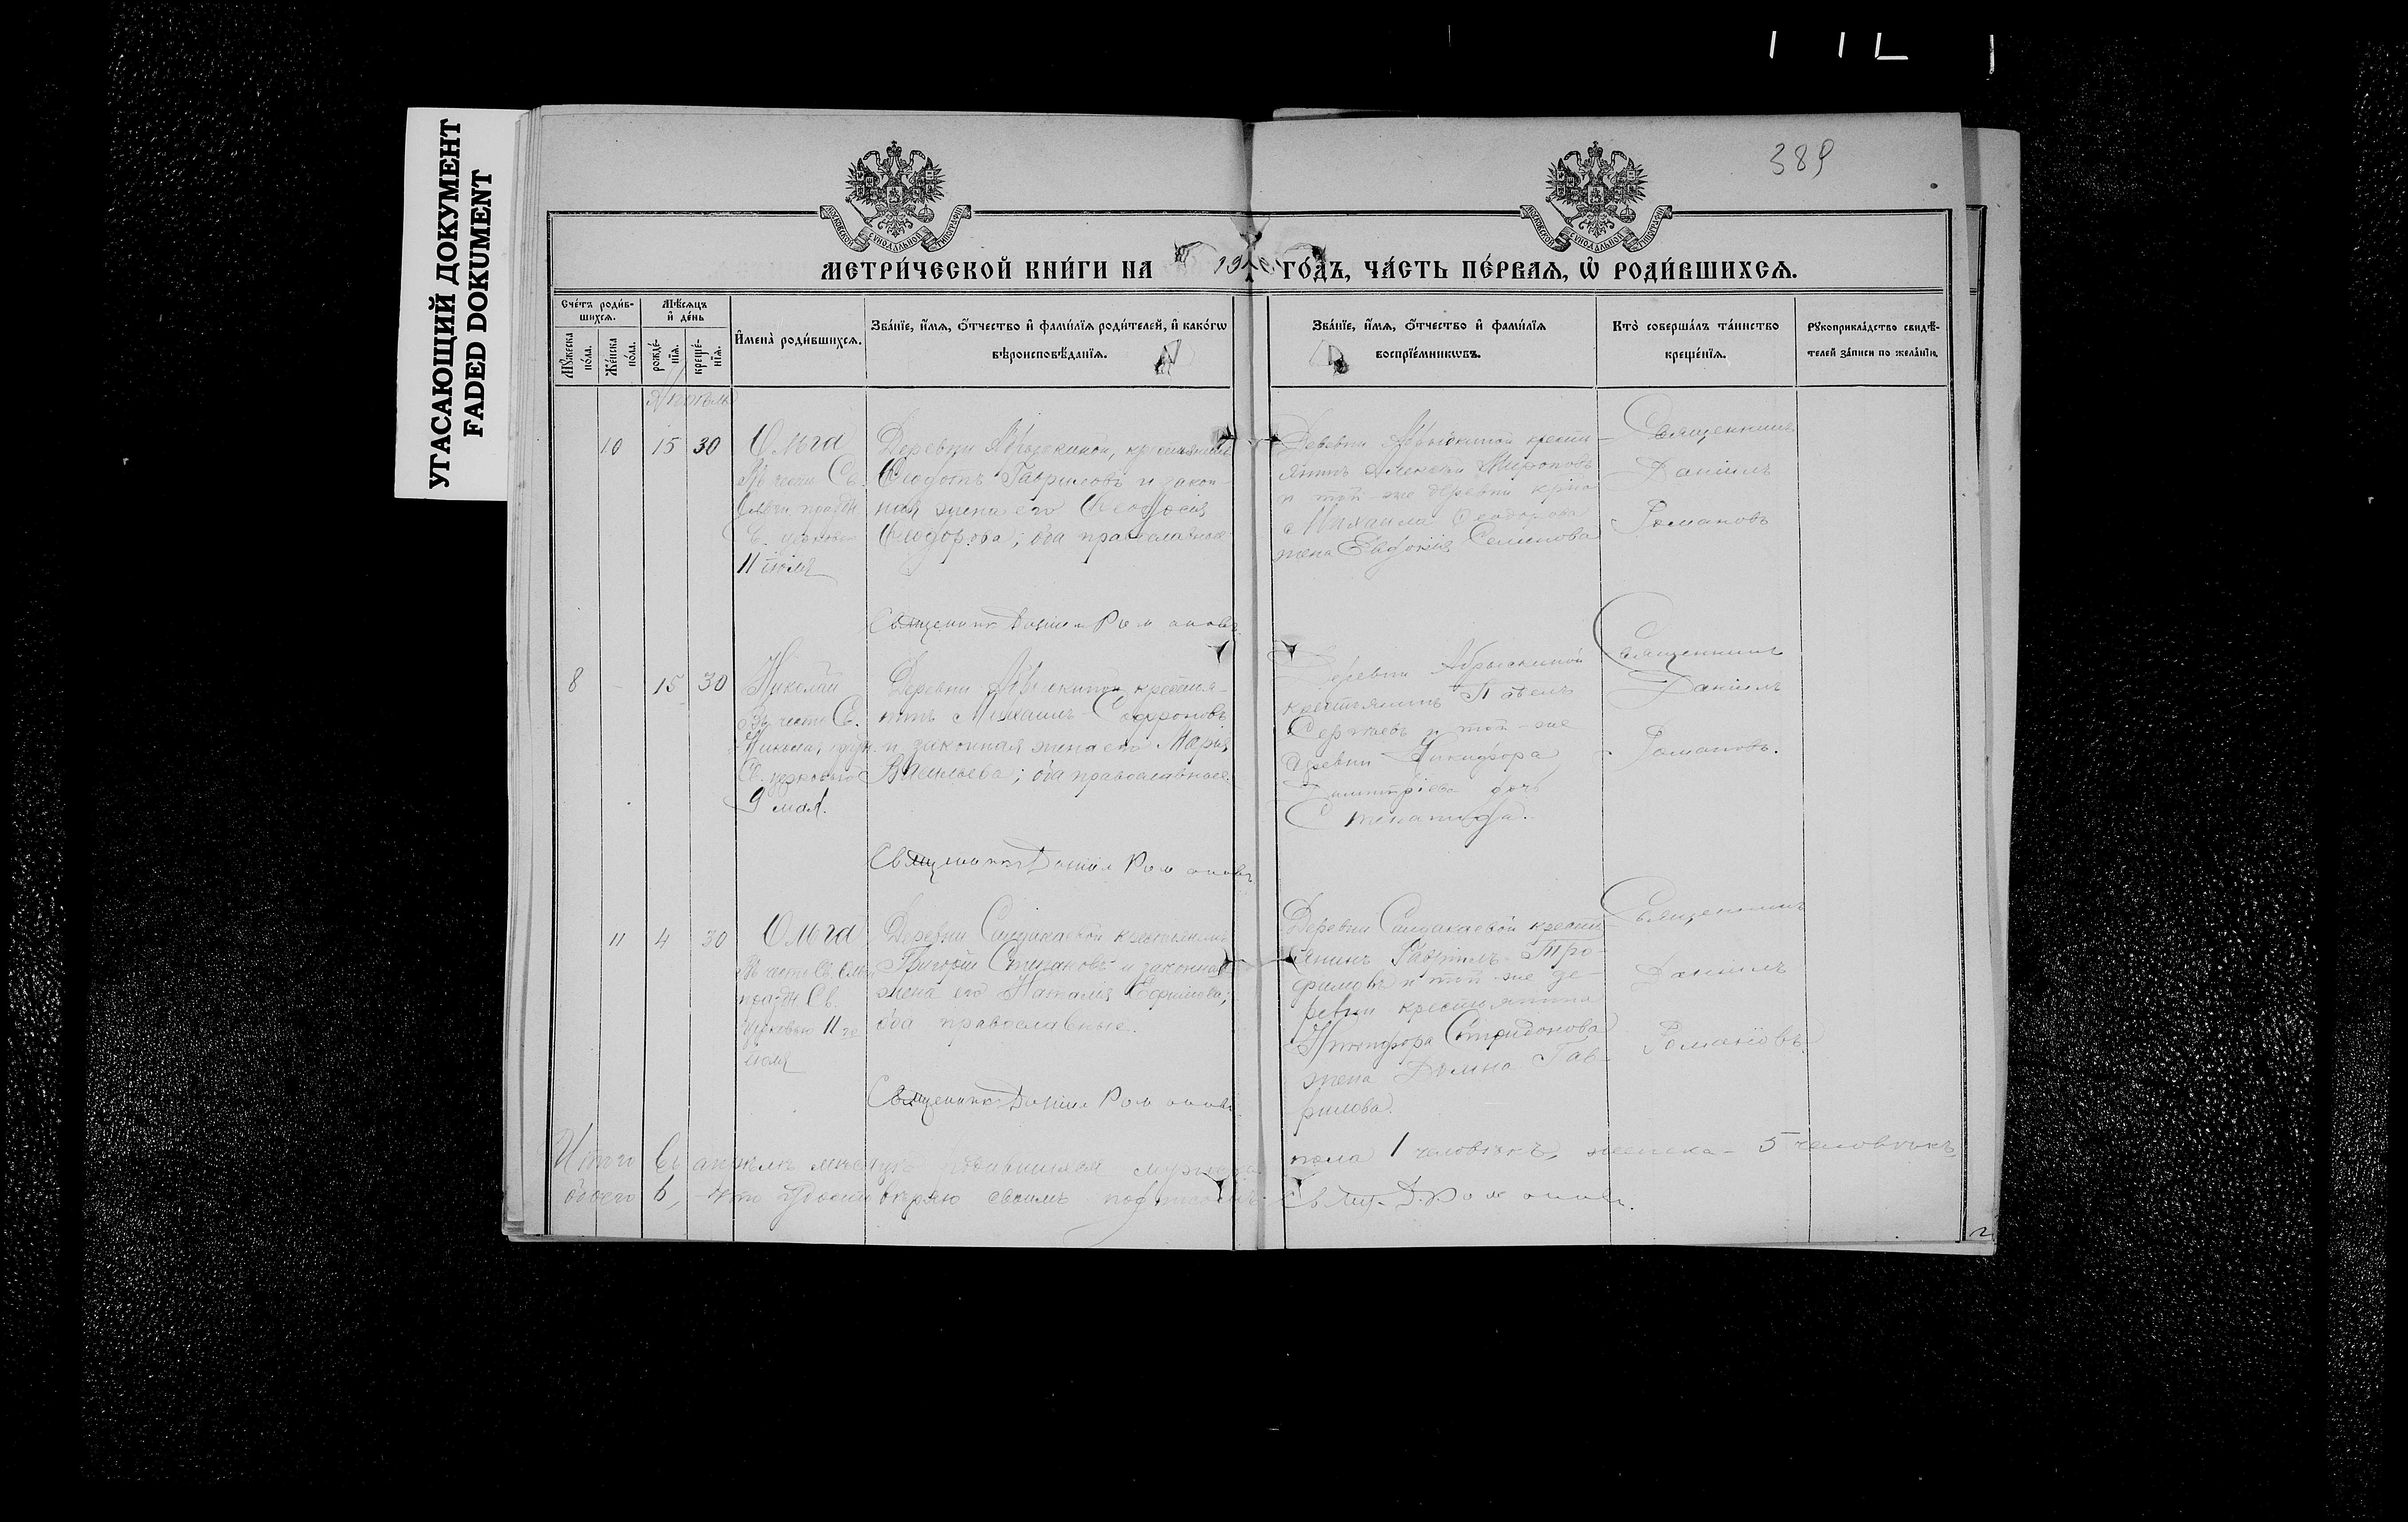 УГАСАЮЩИЙ ДОКУМЕНТ
FADED DOKUMENT
389
МОСКОВСКОЙ СѴНОДАЛЬНОЙ ТИПОГРАФІИ
МОСКОВСКОЙ СѴНОДАЛЬНОЙ ТИПОГРАФІИ
МЕТРИ́ЧЕСКОЙ КНИ́ГИ НА 19
ГО́ДЪ, ЧА́СТЬ ПЕ́РВАѦ, Ѡ҆ РОДИ́ВШИХСѦ.
Сче́тъ роди́в-
шихсѧ.
Мꙋ́жеска
по́ла.
Же́нска
по́ла.
Мѣ́сѧцъ
и҆ де́нь
рожде́-
нїѧ.
креще́-
нїѧ.
И҆мена̀ роди́вшихсѧ.
Зва́нїе, и҆́мѧ, ѻ҆́тчество и҆ фами́лїѧ роди́телей, и҆ како́гѡ
вѣроисповѣ́данїѧ.
Зва́нїе, и҆́мѧ, ѻ҆́тчество и҆ фами́лїѧ
воспрїе́мникѡвъ.
Кто̀ соверша́лъ та́инство
креще́нїѧ.
Рꙋкоприкла́дство свидѣ́-
телей за́писи по жела́нїю.
Апрѣль
10 15 30
Ольга
Въ честь Св.
Ольги праздн.
Св. церковью
11 іюля
Деревни Абрыскиной, крестьянинъ
Ѳеодотъ Гавриловъ и закон-
ная жена его Ѳеодосія
Ѳеодорова; оба православные
Священникъ Даніилъ Романовъ
Деревни Абрыскиной крестья-
нинъ Мироновъ
и той-же деревни кр-на
Михаила Ѳеодорова
жена Евдокія Семенова
Священникъ
Даніилъ
Романовъ
8 - 15 30
Николай
Въ честь Св.
Николая праздн.
Св. церковью
9 мая.
Деревни Абрыскиной крестья-
нинъ Михаилъ Софроновъ
и законная жена его Марія
Васильева; оба православные.
Священникъ Даніилъ Романовъ
Деревни Абрыскиной
крестьянинъ Павелъ
Сергѣевъ и той-же
деревни Никифора
Димитріева дочь
Степанида.
Священникъ
Даніилъ
Романовъ.
11 4 30
Ольга
Въ честь Св. Ольги
праздн. Св.
церковью 11-го
іюля
Деревни Саидакаевой крестьянинъ
Григорій Степановъ и законная
жена его Наталія Ефимова;
оба православные.
Священникъ Даніилъ Романовъ
Деревни Саидакаевой кресть-
янинъ Гавріилъ Тро-
фимовъ и той-же де-
ревни крестьянина
Никифора Спиридонова
жена Домна Гав-
рилова.
Священникъ
Даніилъ
Романовъ.
Итого въ апрѣлѣ мѣсяцѣ родившихся мужеска
пола 1 человѣкъ, женска - 5 человѣкъ,
обоего 6, что удостовѣряю своимъ подписомъ
Свящ. Д. Романовъ.